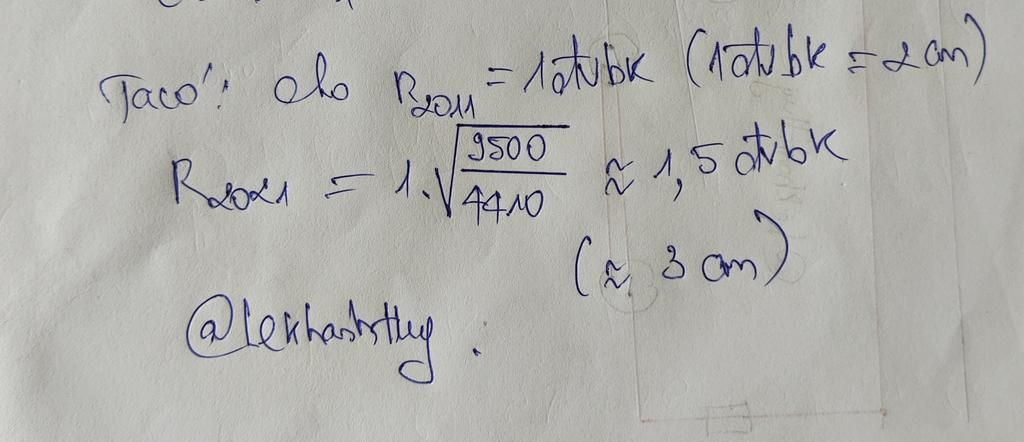 Ta có: cho R2011 = 1đvbk (1đvbk = 2 cm)
R2021 = 1.√9500/4410 ≈ 1,5 đvbk
(≈ 3 cm)